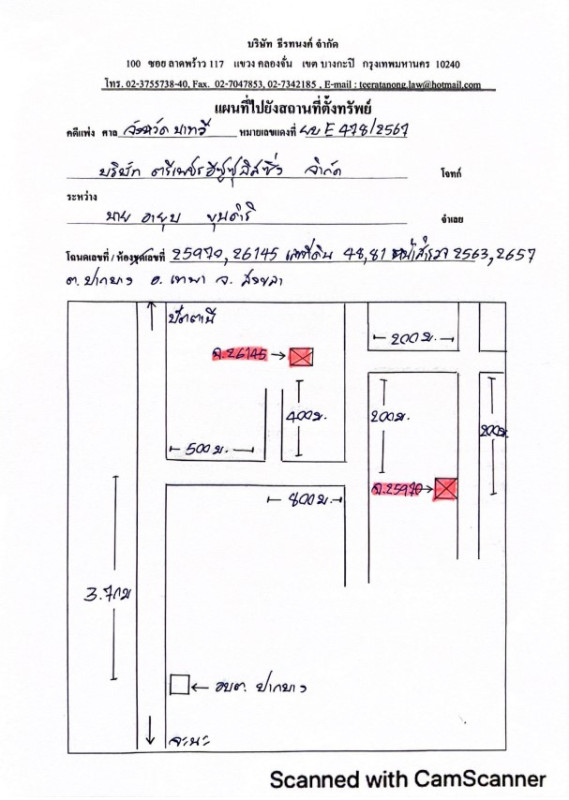 บริษัท ธีรทนงค์ จำกัด
100 ซอย ลาดพร้าว 117 แขวง คลองจั่น เขต บางกะปิ กรุงเทพมหานคร 10240
โทร. 02-3755738-40, Fax. 02-7047853, 02-7342185 , E-mail : teeratanong.law@hotmail.com
แผนที่ไปยังสถานที่ตั้งทรัพย์
คดีแพ่ง ศาล จังหวัด นาทวี หมายเลขแดงที่ ผบ E 478/2567
บริษัท ตรีเพชรอีซูซุลิสซิ่ง จำกัด โจทก์
ระหว่าง
นาย อายุบ ขุนดำรี จำเลย
โฉนดเลขที่ / ห้องชุดเลขที่ 25970, 26145 เลขที่ดิน 48,81 หน้าสำรวจ 2563, 2657
ต. ปากบาง อ. เทพา จ. สงขลา
ปัตตานี
200 ม.
ฉ.26145
400ม.
200ม.
200ม.
500 ม.
ฉ.25970
800 ม.
3.7กม
อบต. ปากบาง
จะนะ
Scanned with CamScanner